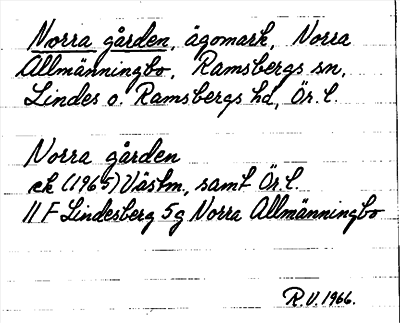 Norra gården, ägomark, Norra
Allmänningbo, Ramsbergs sn,
Lindes o. Ramsbergs hd, Ör.l.
Norra gården
ek (1965) Västm, samt Ör.l.
11 F Lindesberg 5g Norra Allmänningbo
R.V. 1966.